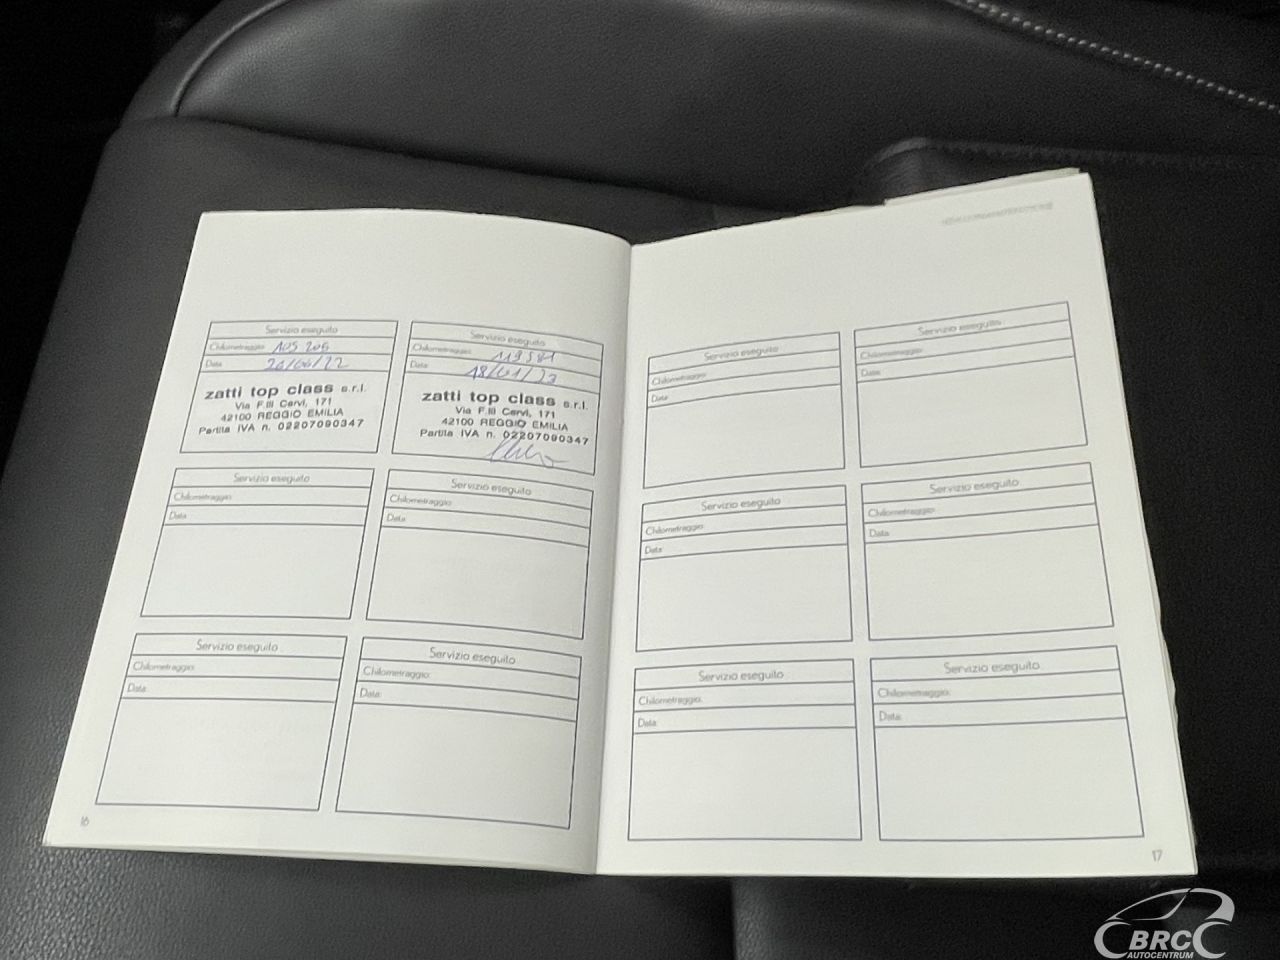 Servizio eseguito
Chilometraggio: 105 205
Data: 20/06/22
zatti top class s.r.l.
Via F.lli Cervi, 171
42100 REGGIO EMILIA
Partita IVA n. 02207090347
Servizio eseguito
Chilometraggio: 119581
Data: 18/01/23
zatti top class s.r.l.
Via F.lli Cervi, 171
42100 REGGIO EMILIA
Partita IVA n. 02207090347
Servizio eseguito
Chilometraggio:
Data:
Servizio eseguito
Chilometraggio:
Data:
Servizio eseguito
Chilometraggio:
Data:
Servizio eseguito
Chilometraggio:
Data:
16
Servizio eseguito
Chilometraggio:
Data:
Servizio eseguito
Chilometraggio:
Data:
Servizio eseguito
Chilometraggio:
Data:
Servizio eseguito
Chilometraggio:
Data:
Servizio eseguito
Chilometraggio:
Data:
Servizio eseguito
Chilometraggio:
Data:
17
BRC
AUTOCENTRUM